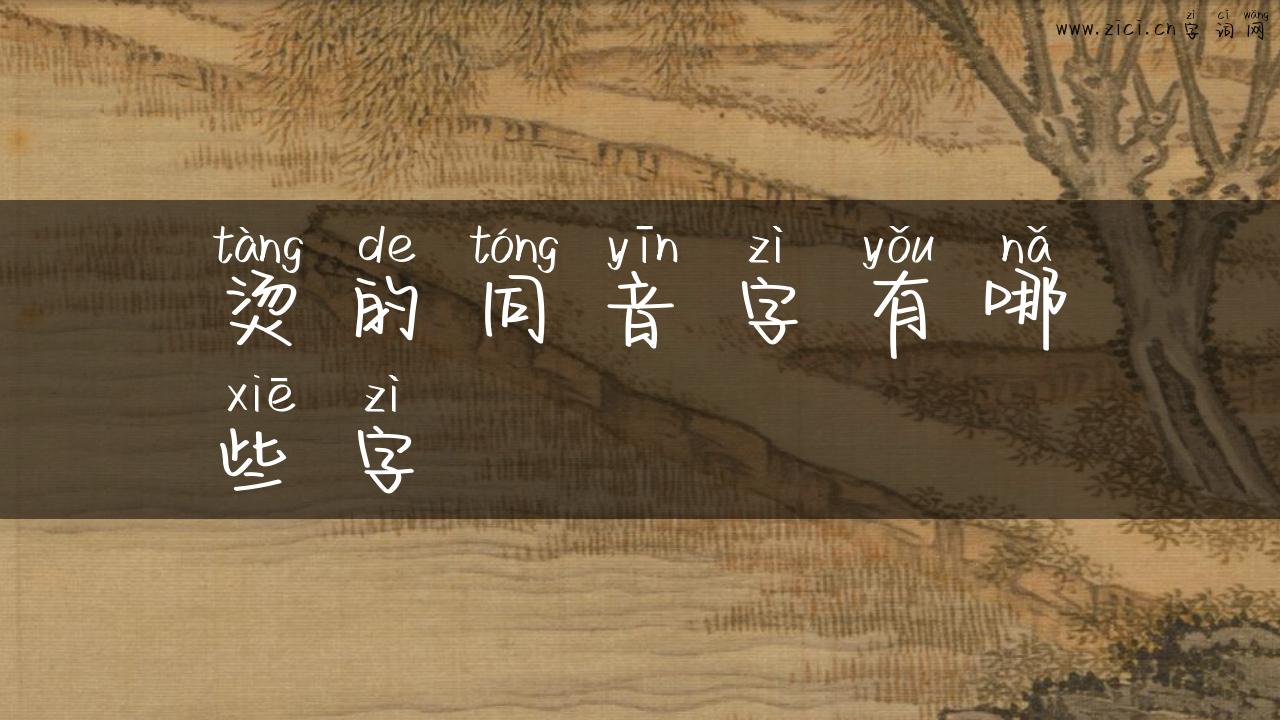 zì cí wǎng
www.zici.cn字词网
tàng de tóng yīn zì yǒu nǎ
烫的同音字有哪
xiē zì
些字